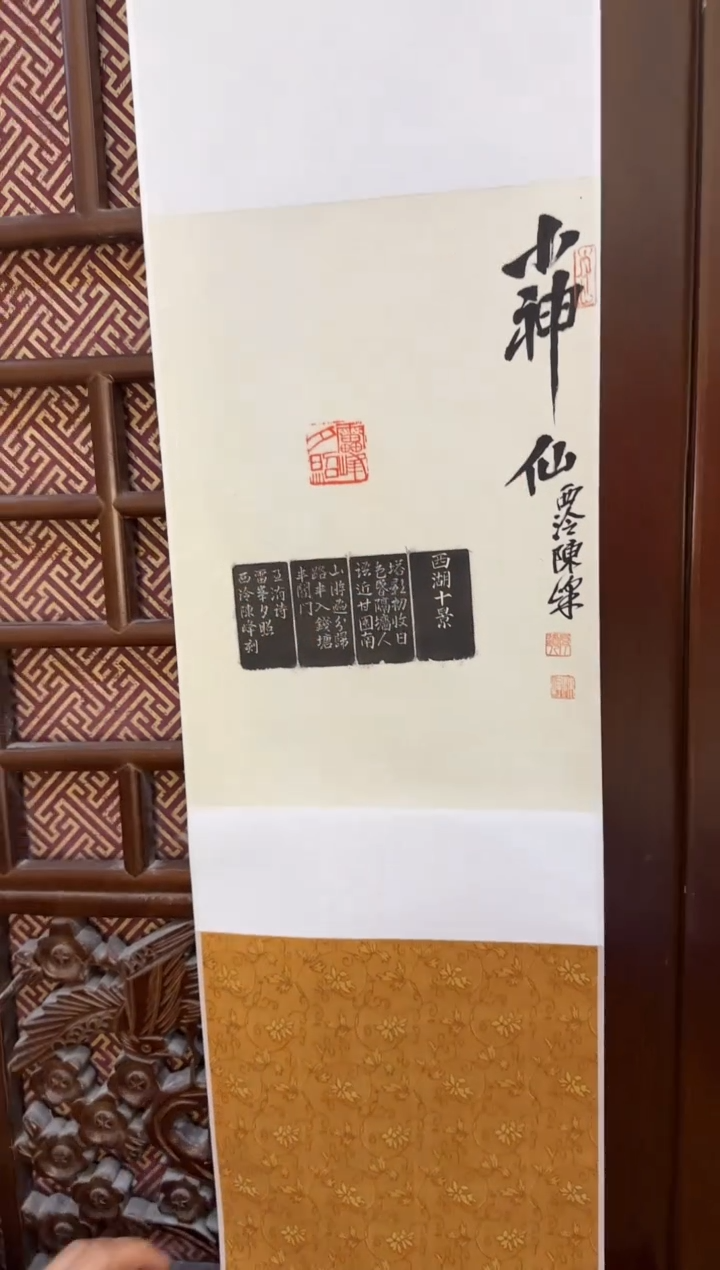 小神仙
西泠陳
雷峰夕照
西湖十景
塔影初收日
色昏隔墻人
語近甘園南
山游遍分歸
路半入錢塘
半闇門
王洧詩
雷峯夕照
西泠陳峰刻